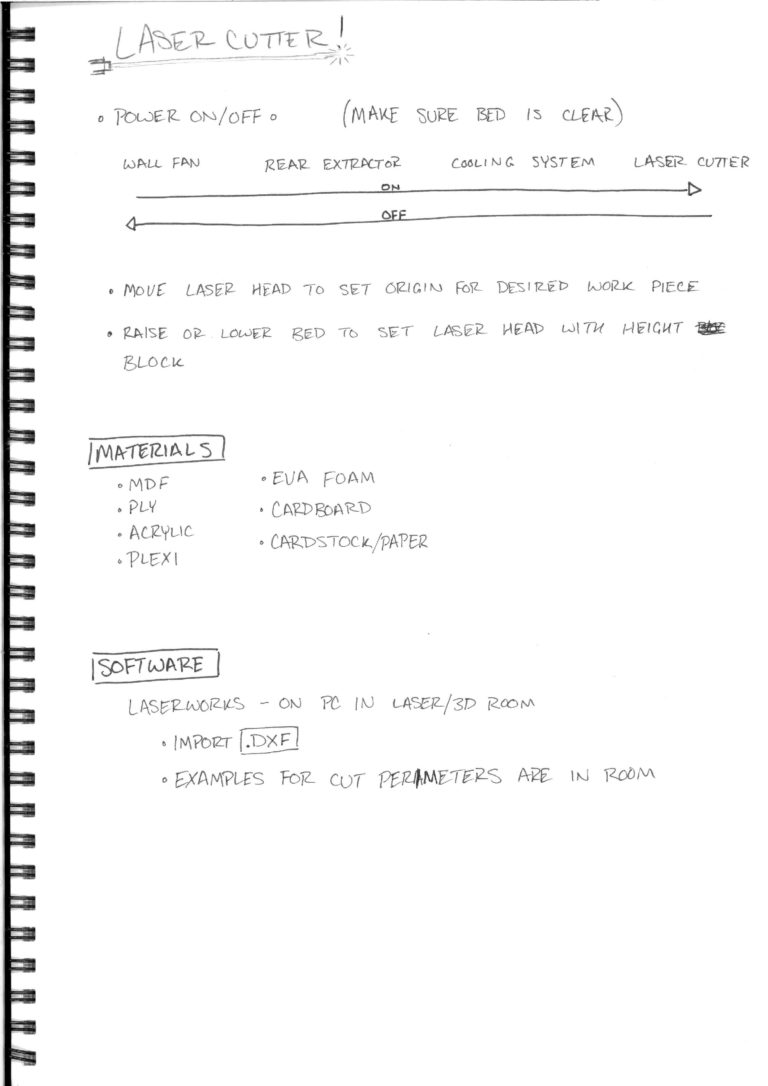 LASER CUTTER!
• POWER ON/OFF • (MAKE SURE BED IS CLEAR)
WALL FAN REAR EXTRACTOR COOLING SYSTEM LASER CUTTER
ON
OFF
• MOVE LASER HEAD TO SET ORIGIN FOR DESIRED WORK PIECE
• RAISE OR LOWER BED TO SET LASER HEAD WITH HEIGHT
BLOCK
MATERIALS
• MDF
• PLY
• ACRYLIC
• PLEXI
• EVA FOAM
• CARDBOARD
• CARDSTOCK/PAPER
SOFTWARE
LASERWORKS - ON PC IN LASER/3D ROOM
• IMPORT .DXF
• EXAMPLES FOR CUT PERAMETERS ARE IN ROOM